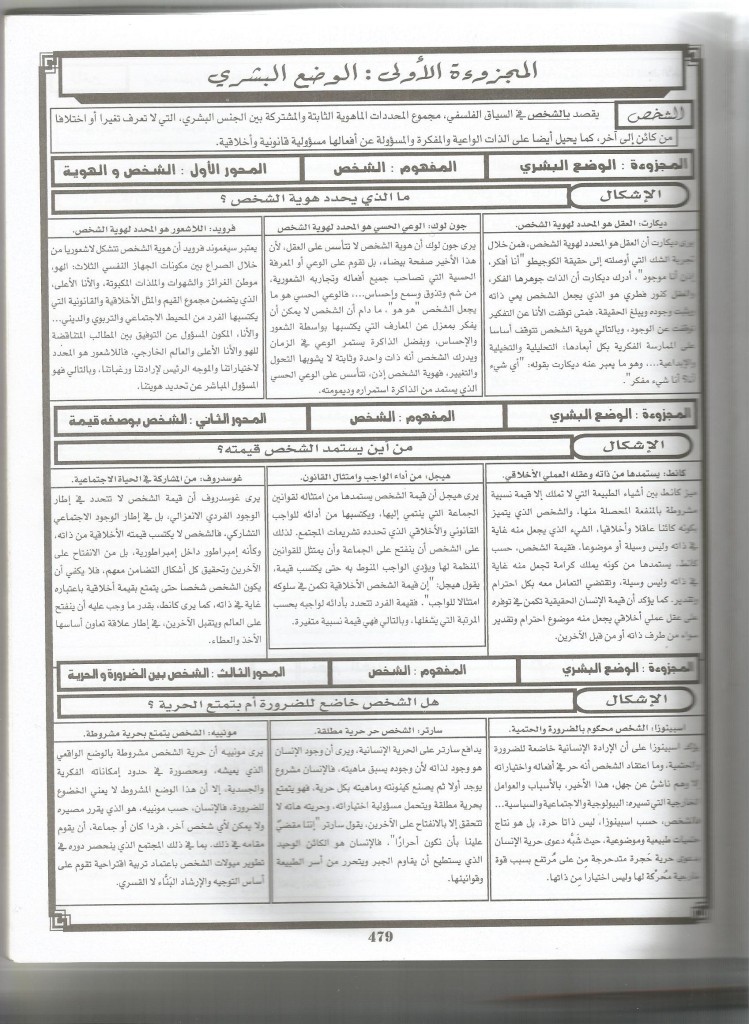 المجزوءة الأولى : الوضع البشري
الشخص
يقصد بالشخص في السياق الفلسفي، مجموع المحددات الماهوية الثابتة والمشتركة بين الجنس البشري، التي لا تعرف تغيرا أو اختلافا
من كائن إلى آخر، كما يحيل أيضا على الذات الواعية والمفكرة والمسؤولة عن أفعالها مسؤولية قانونية وأخلاقية.
المجزوءة : الوضع البشري
المفهوم : الشخص
المحور الأول : الشخص و الهوية
الإشكال
ما الذي يحدد هوية الشخص ؟
ديكارت: العقل هو المحدد لهوية الشخص.
يرى ديكارت أن العقل هو المحدد لهوية الشخص، فمن خلال
تجربة الشك التي أوصلته إلى حقيقة الكوجيطو "أنا أفكر،
إذن أنا موجود"، أدرك ديكارت أن الذات جوهرها الفكر،
والعقل كنور فطري هو الذي يجعل الشخص يعي ذاته
ويثبت وجوده ويبلغ الحقيقة. فمتى توقفت الأنا عن التفكير
توقفت عن الوجود، وبالتالي هوية الشخص تتوقف أساسا
على الممارسة الفكرية بكل أبعادها: التحليلية والتخيلية
والإبداعية....، وهو ما يعبر عنه ديكارت بقوله: "أي شيء
أنا؟ أنا شيء مفكر".
جون لوك: الوعي الحسي هو المحدد لهوية الشخص
يرى جون لوك أن هوية الشخص لا تتأسس على العقل، لأن
هذا الأخير صفحة بيضاء، بل تقوم على الوعي أو المعرفة
الحسية التي تصاحب جميع أفعاله وتجاربه الشعورية،
من شم وتذوق وسمع وإحساس.... فالوعي الحسي هو ما
يجعل الشخص "هو هو"، ما دام أن الشخص لا يمكن أن
يفكر بمعزل عن المعارف التي يكتسبها بواسطة الشعور
والإحساس، وبفضل الذاكرة يستمر الوعي في الزمان
ويدرك الشخص أنه ذات واحدة وثابتة لا يشوبها التحول
والتغيير، فهوية الشخص إذن، تتأسس على الوعي الحسي
الذي يستمد من الذاكرة استمراره وديمومته.
فرويد: اللاشعور هو المحدد لهوية الشخص.
يعتبر سيغموند فرويد أن هوية الشخص تتشكل لاشعوريا من
خلال الصراع بين مكونات الجهاز النفسي الثلاث: الهو،
موطن الغرائز والشهوات والملذات المكبوتة، والأنا الأعلى،
الذي يتضمن مجموع القيم والمثل الأخلاقية والقانونية التي
يكتسبها الفرد من المحيط الاجتماعي والتربوي والديني...
والأنا، المكون المسؤول عن التوفيق بين المطالب المتناقضة
للهو والأنا الأعلى والعالم الخارجي. فاللاشعور هو المحدد
لاختياراتنا والموجه الرئيس لإرادتنا ورغباتنا، وبالتالي فهو
المسؤول المباشر عن تحديد هويتنا.
المجزوءة : الوضع البشري
المفهوم : الشخص
المحور الثاني : الشخص بوصفه قيمة
الإشكال
من أين يستمد الشخص قيمته؟
كانط: يستمدها من ذاته وعقله العملي الأخلاقي.
ميز كانط بين أشياء الطبيعة التي لا تملك إلا قيمة نسبية
مشروطة بالمنفعة المحصلة منها، والشخص الذي يتميز
بكونه كائنا عاقلا وأخلاقيا، الشيء الذي يجعل منه غاية
في ذاته وليس وسيلة أو موضوعا. فقيمة الشخص، حسب
كانط، يستمدها من كونه يملك كرامة تجعل منه غاية
في ذاته وليس وسيلة، وتقتضي التعامل معه بكل احترام
وتقدير. كما يؤكد أن قيمة الإنسان الحقيقية تكمن في توفره
على عقل عملي أخلاقي يجعل منه موضوع احترام وتقدير
سواء من طرف ذاته أو من قبل الآخرين.
هيجل: من أداء الواجب وامتثال القانون.
يرى هيجل أن قيمة الشخص يستمدها من امتثاله لقوانين
الجماعة التي ينتمي إليها، ويكتسبها من أدائه للواجب
القانوني والأخلاقي الذي تحدده تشريعات المجتمع. لذلك
على الشخص أن ينفتح على الجماعة وأن يمتثل للقوانين
المنظمة لها ويؤدي الواجب المنوط به حتى يكتسب قيمة،
يقول هيجل: "إن قيمة الشخص الأخلاقية تكمن في سلوكه
امتثالا للواجب". فقيمة الفرد تتحدد بأدائه لواجبه بحسب
المرتبة التي يشغلها، وبالتالي فهي قيمة نسبية متغيرة.
غوسدروف: من المشاركة في الحياة الاجتماعية.
يرى غوسدروف أن قيمة الشخص لا تتحدد في إطار
الوجود الفردي الانعزالي، بل في إطار الوجود الاجتماعي
التشاركي، فالشخص لا يكتسب قيمته الأخلاقية من ذاته،
وكأنه إمبراطور داخل إمبراطورية، بل من الانفتاح على
الآخرين وتحقيق كل أشكال التضامن معهم، فلا يكفي أن
يكون الشخص شخصا حتى يتمتع بقيمة أخلاقية باعتباره
غاية في ذاته، كما يرى كانط، بقدر ما وجب عليه أن ينفتح
على العالم ويتقبل الآخرين، في إطار علاقة تعاون أساسها
الأخذ والعطاء.
المجزوءة : الوضع البشري
المفهوم : الشخص
المحور الثالث : الشخص بين الضرورة و الحرية
الإشكال
هل الشخص خاضع للضرورة أم يتمتع الحرية ؟
اسبينوزا، الشخص محكوم بالضرورة والحتمية.
يؤكد اسبينوزا على أن الإرادة الإنسانية خاضعة للضرورة
والحتمية، وما اعتقاد الشخص أنه حر في أفعاله واختياراته
إلا وهم ناشئ عن جهل، هذا الأخير، بالأسباب والعوامل
الخارجية التي تسيره: البيولوجية والاجتماعية والسياسية...
فالشخص، حسب اسبينوزا، ليس ذاتا حرة، بل هو نتاج
حتميات طبيعية وموضوعية، حيث شبَّه دعوى حرية الإنسان
بدعوى حرية حَجرة متدحرجة مِن على مُرتفع بسبب قوة
خارجية مُحركة لها وليس اختيارا مِن ذاتها.
سارتر: الشخص حر حرية مطلقة.
يدافع سارتر على الحرية الإنسانية، ويرى أن وجود الإنسان
هو وجود لذاته لأن وجوده يسبق ماهيته. فالإنسان مشروع
يوجد أولا ثم يصنع كينونته وماهيته بكل حرية. فهو يتمتع
بحرية مطلقة ويتحمل مسؤولية اختياراته، وحريته هاته لا
تتحقق إلا بالانفتاح على الآخرين، يقول سارتر "إننا مقضيٌّ
علينا بأن نكون أحرارًا". فالإنسان هو الكائن الوحيد
الذي يستطيع أن يقاوم الجبر ويتحرر من أسر الطبيعة
وقوانينها.
مونييه: الشخص يتمتع بحرية مشروطة.
يرى مونييه أن حرية الشخص مشروطة بالوضع الواقعي
الذي يعيشه، ومحصورة في حدود إمكاناته الفكرية
والجسدية، إلا أن هذا الوضع المشروط لا يعني الخضوع
للضرورة. فالإنسان، حسب مونييه، هو الذي يقرر مصيره
ولا يمكن لأي شخص آخر، فردا كان أو جماعة، أن يقوم
مقامه في ذلك. بما في ذلك المجتمع الذي ينحصر دوره في
تطوير ميولات الشخص باعتماد تربية اقتراحية تقوم على
أساس التوجيه والإرشاد البَنَّاء لا القسري.
479